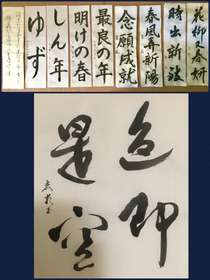 花柳又春妍
時出新說
春風再新陽
念願成就
最良の年
明けの春
しん年
ゆず
色即
是空